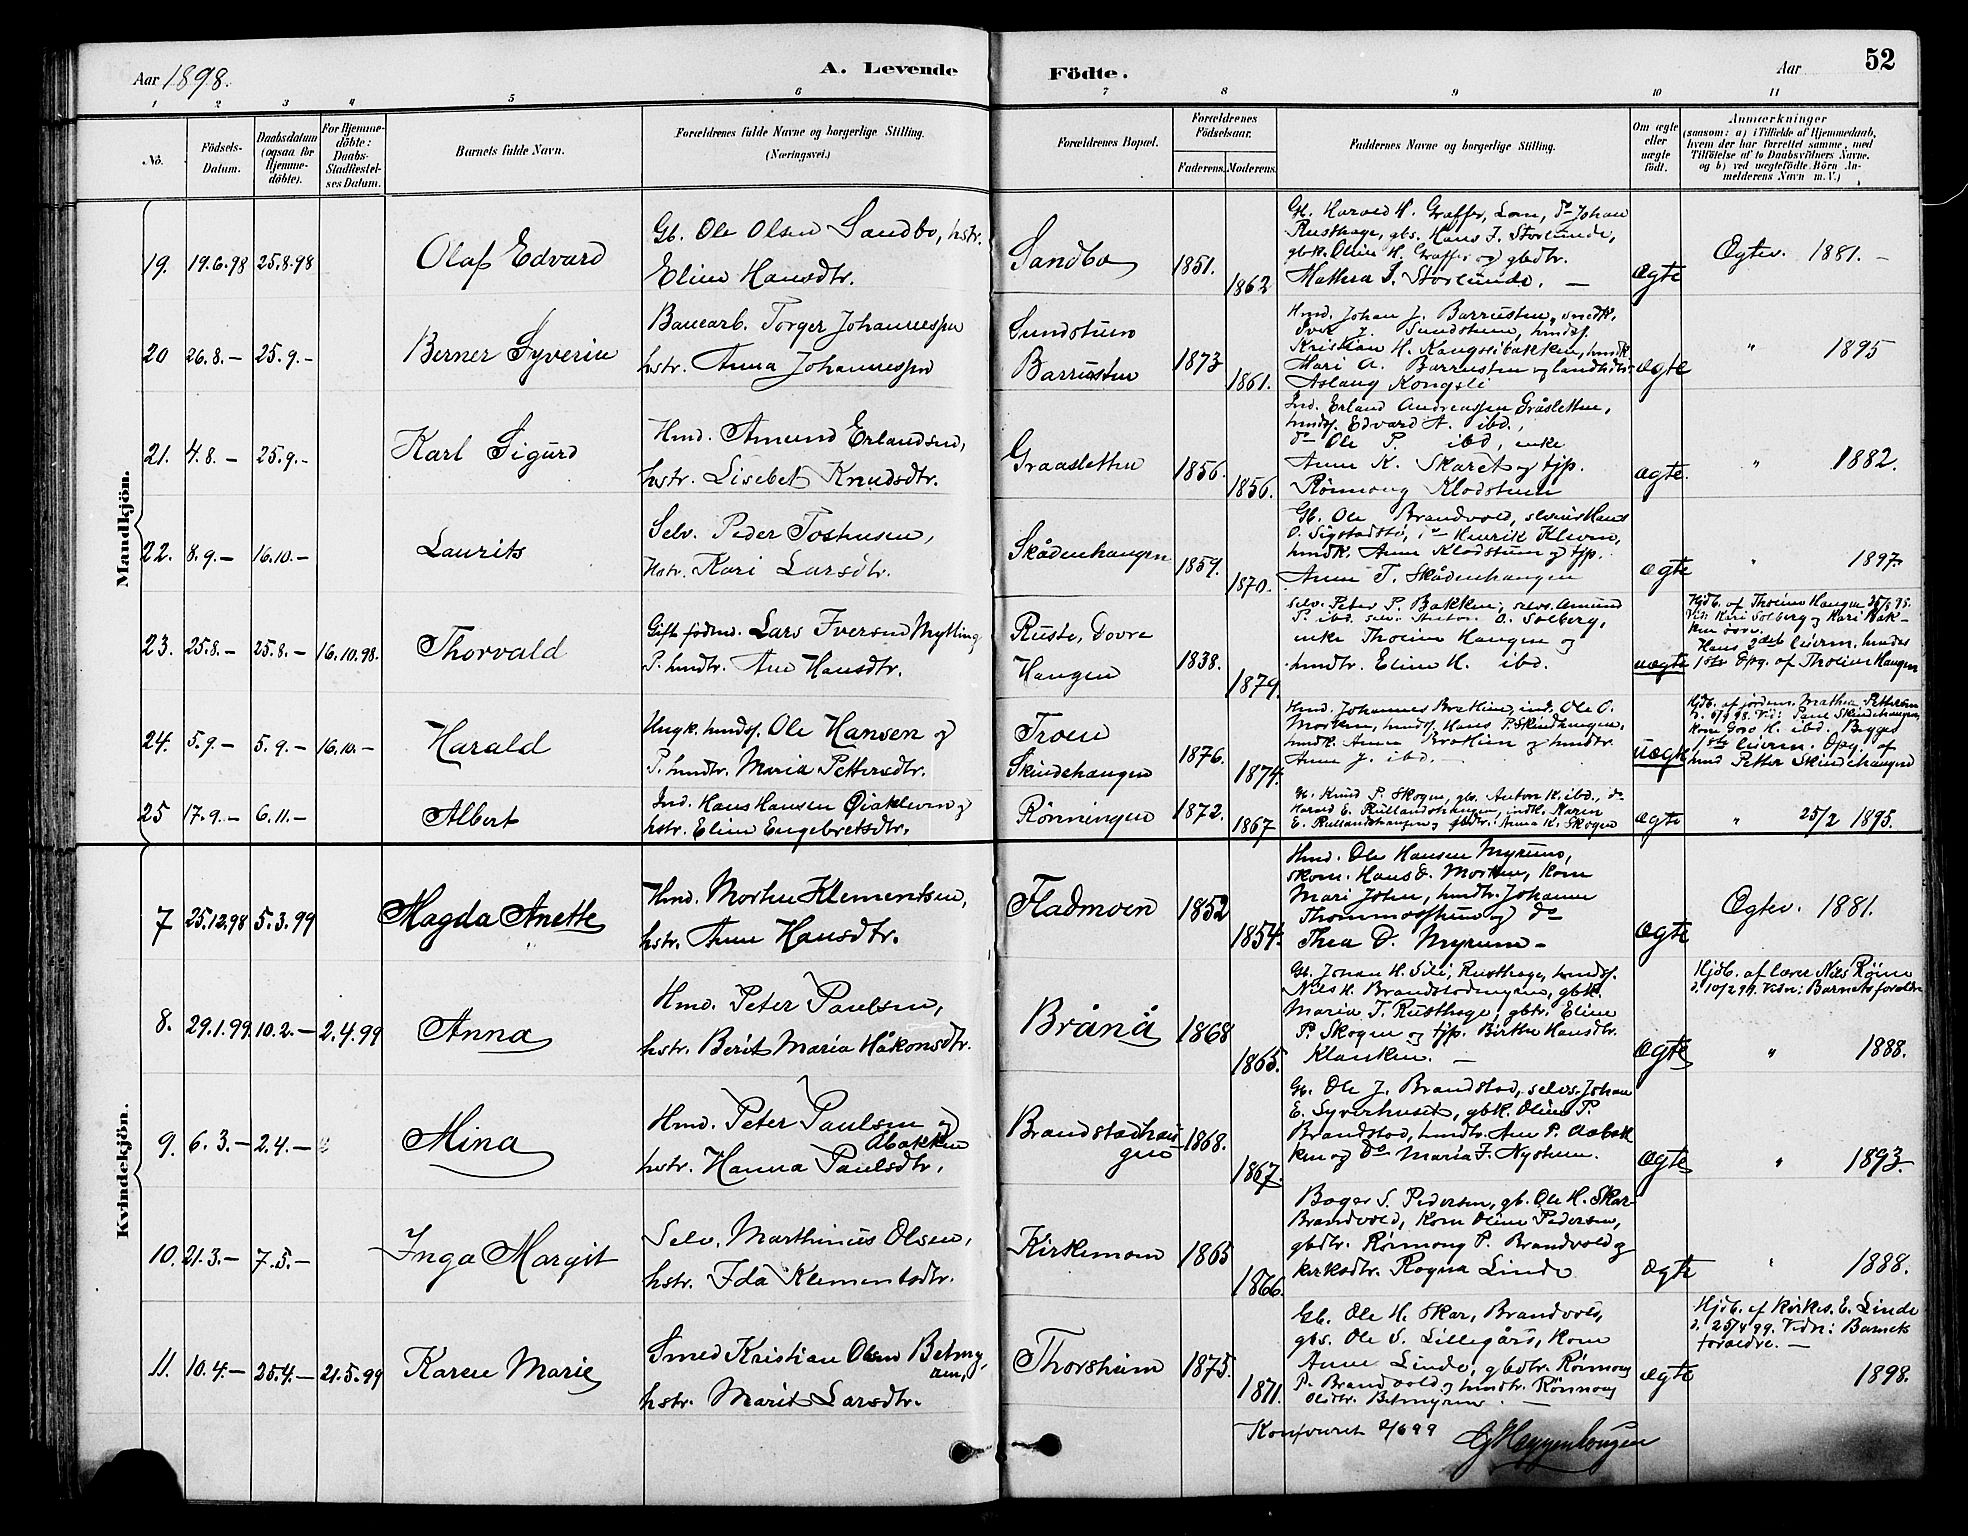 Aar 1898.
A. Levende
Födte.
Aar
52
1 2 3 4 5 6 7 8 9 10 11
No.
Födsels-Datum.
Daabsdatum (ogsaa for Hjemme-döbte).
For Hjemme-döbte: Daabs-Stadfæstel-ses Datum.
Barnets fulde Navn.
Forældrenes fulde Navne og borgerlige Stilling. (Næringsvei.)
Forældrenes Bopæl.
Forældrenes Födselsaar.
Faderens. Moderens.
Faddernes Navne og borgerlige Stilling.
Om ægte eller uægte födt.
Anmærkninger
(saasom: a) i Tilfælde af Hjemmedaab, hvem der har forrettet samme, med Tilföielse af to Daabsvidners Navne. og b) ved uægtefödte Börn An-melderens Navn m. V.)
Mandkjön.
19. 19.6.98 25.8.98
Olaf Edvard
Gb. Ole Olsen Sandbo, hstr.
Eline Hansdtr.
Sandbo
1851.
1862
Gb. Harald H. Graffer, Lom, do Johan
Rusthage, gbs. Hans J. Storlunde,
gbk. Oline H. Graffer og gbdtr.
Mathea S. Storlunde. —
Ægte
Ægtev. 1881. —
20 26.8.— 25.9.—
Berner Syverin
Banearb. Torger Johannessen
hstr. Anna Johannessen
Sundstuen
Barrusten
1873
1861.
Hmd. Johan J. Barrusten, smedk.
Iver J. Sundstuen, hmdsf.
Kristian H. Kangslibakken, hmdk.
Mari A. Barrusten og landhdtr.
Aslaug Kongsli
ægte
" 1895
21. 4.8.— 25.9.—
Karl Sigurd
Hmd. Amund Erlandsen,
hstr. Lisebet Knudsdtr.
Graasletten
1856.
1856.
Ind. Erland Andreassen Gråsletten,
hmdsf. Edvard A. ibd.,
do Ole P. ibd, enke
Anne K. Skaret og tjp.
Rønnong Klodstuen
ægte.
" 1882.
22. 8.9.— 16.10.—
Laurits
Selv. Peder Tosthusen,
Hstr. Kari Larsdtr.
Skådenhaugen
1859.
1870.
Gb. Ole Brandvold, selveier Hans
O. Sigstadstø, do Henrik Kleven,
hmdk. Anne Klodstuen og tjp.
Anne T. Skådenhaugen
ægte
" 1897.
23. 25.8.— 25.8.— 16.10.98.
Thorvald
Gift fødrd. Lars Iversen Mytting
P. hmdtr. Ane Hansdtr.
Ruste, Dovre
Haugen
1838.
1879.
selv. Peter P. Bakken, selvs. Amund
P. ibd. selv. Anton O. Solberg,
enke Thoine Haugen og
hmdtr. Eline H. ibd.
uægte
Hjdb. af Thoine Haugen
Vid: Kari Solberg og Kari Bak-
ken
Hans 2det leierm. hendes
1ste Opg. af Thoine Haugen
24. 5.9.— 5.9.— 16.10.—
Harald
Ungk. hmdsf. Ole Hansen og
P. hmdtr. Maria Pettersdtr.
Troen
Skindehaugen
1876.
1874.
Hmd. Johannes Bræklien, ind. Ole O.
Morken, hmdsf. Hans P. Skindhaugen,
hmdk. Anne Bræklien og hmdtr.
Anne J. ibd. —
uægte
Hjdb. af jordem. Mathea Pettersen
d. 6/9 98. Vid: Paul Skindehaugen,
kone Goro K. ibd. Begges
1ste leierm. Opg. af
hmd Petter Skindehaugen
25 17.9.— 6.11.—
Albert
Ind. Hans Hansen Qviakleven og
hstr. Eline Engebretsdtr.
Rønningen
1872.
1867
Gb. Knud P. Skogen, gbs. Anton K. ibd., do
Harald E. Rullandshaugen, indk. Karen
E. Rullandshaugen og gbdtr. Anna K. Skogen
ægte
" 25/2 1895.
Kvindekjön.
7 25.12.98 5.3.99
Magda Anette
Hmd. Morten Klementsen,
hstr. Anne Hansdtr.
Fladmoen
1852
1854.
Hmd. Ole Hansen Myrum,
skom. Hans D. Morken, kone
Mari John, hmdtr. Johanne
Thommasstuen og do
Thea D. Myrum —
ægte
Ægtev. 1881.
8. 29.1.99 10.2.— 2.4.99
Anna
Hmd. Peter Paulsen,
hstr. Berit Maria Håkonsdtr.
Brånå
1868
1865.
Gb. Johan H. Sili, Rusthage, hmdsf.
Nils H. Brandstadengen, gbk.
Maria T. Rusthage, gbtr. Eline
P. Skogen og tjp. Birthe Hansdtr.
Klanken. —
ægte
Hjdb. af lærer Nils Røine
d. 10/2 99. Vidn: Barnets forældre
" 1888.
9. 6.3.— 2.4.—
Mina
Hmd. Peter Paulsen og
Abakken
hstr. Hanna Paulsdtr,
Brandstadhau-
gen
1868.
1867.
Gb. Ole J. Brandstad, selvs. Johan
E. Syverhuset, gbk. Oline P.
Brandstad, hmdtr. Ane P. Aabak
ken og do Maria J. Nystuen.
ægte
" 1893.
10. 21.3.— 7.5.—
Inga Margit
Selv. Marthinus Olsen,
hstr. Ida Klementsdtr.
Kirkemoen
1865
1866.
Bager S. Pedersen, gb. Ole H. Skar-
Brandvold, kone Oline Pedersen,
gbdtr. Rønnong P. Brandvold og
kirksdtr. Ragna Linde
ægte
" 1888.
11. 10.4.— 25.4.— 21.5.99
Karen Marie
Smed Kristian Olsen Betmy,
hstr. Marit Larsdtr.
Thorshum
1875.
1871.
Gb. Ole H. Skar, Brandvold,
gbs. Ole S. Lillegård, kone
Anne Linde, gbdtr. Rønnong
P. Brandvold og hmdtr. Rønnong
Olsdtr. Betmyren. —
ægte
Hjdb. af kirkes. E. Linde
d. 25/4 99. Vidn: Barnets
forældre. —
1898.
Konfereret 2/6 99
G Heggenhougen